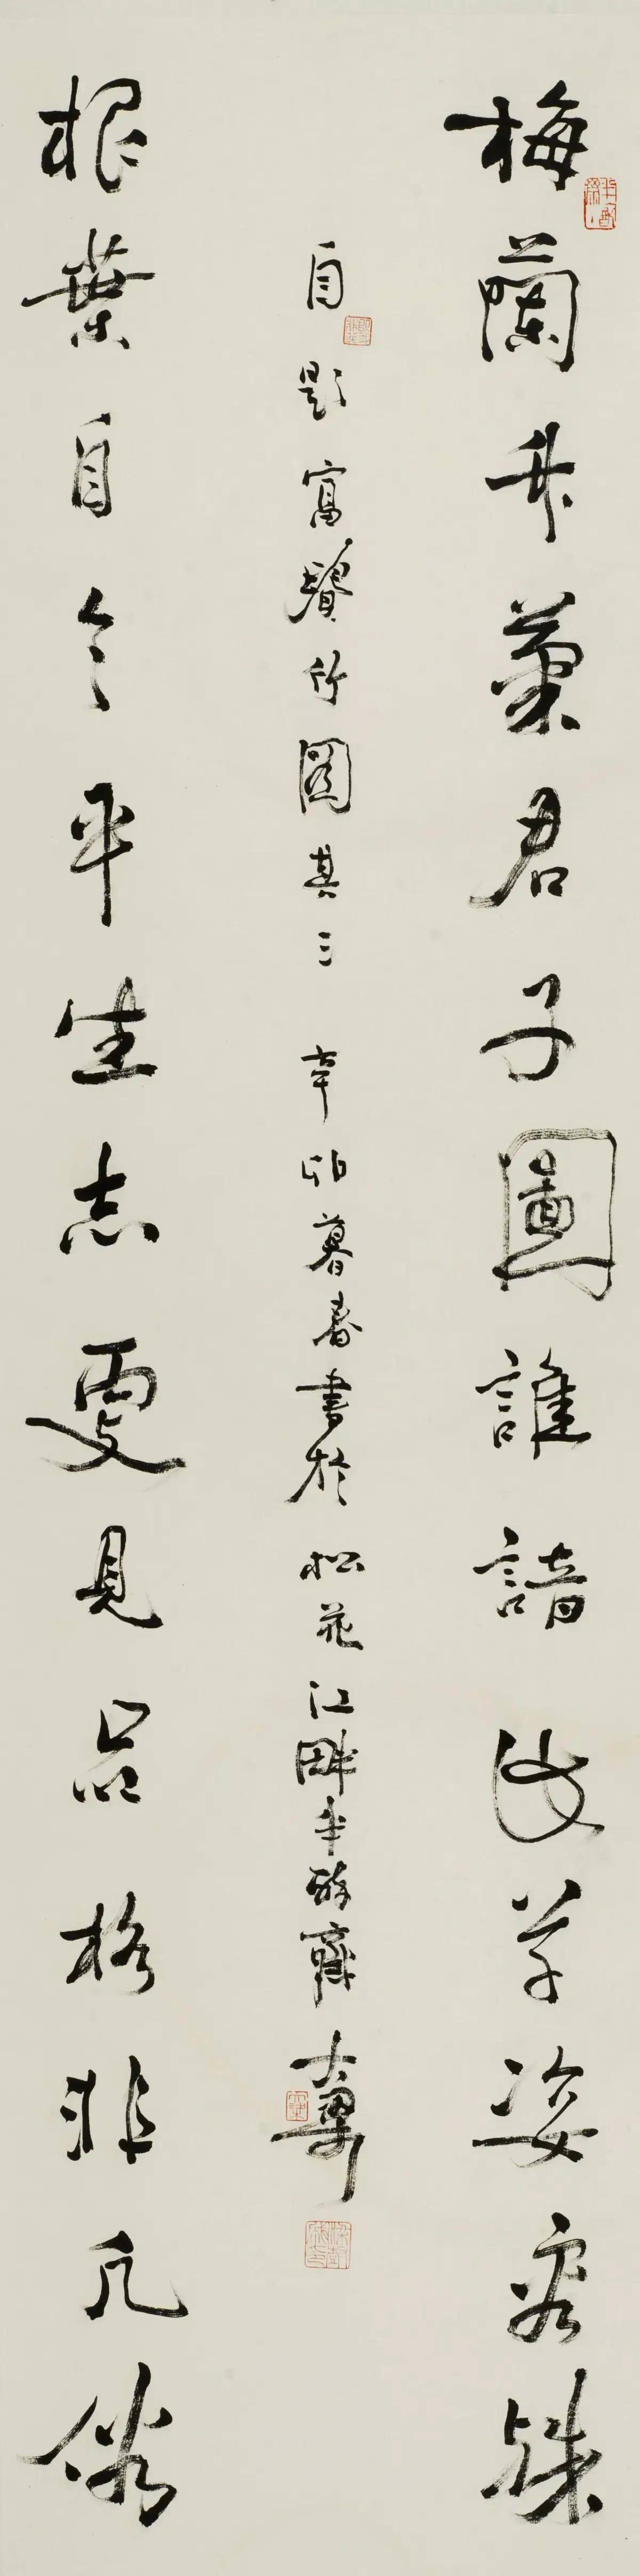 梅蘭竹菊君子圖誰諳此草姿容殊
根葉自今平生志更見品格非凡俗
自題富貴竹圖其三 辛卯暮春書於松花江畔半醉齋